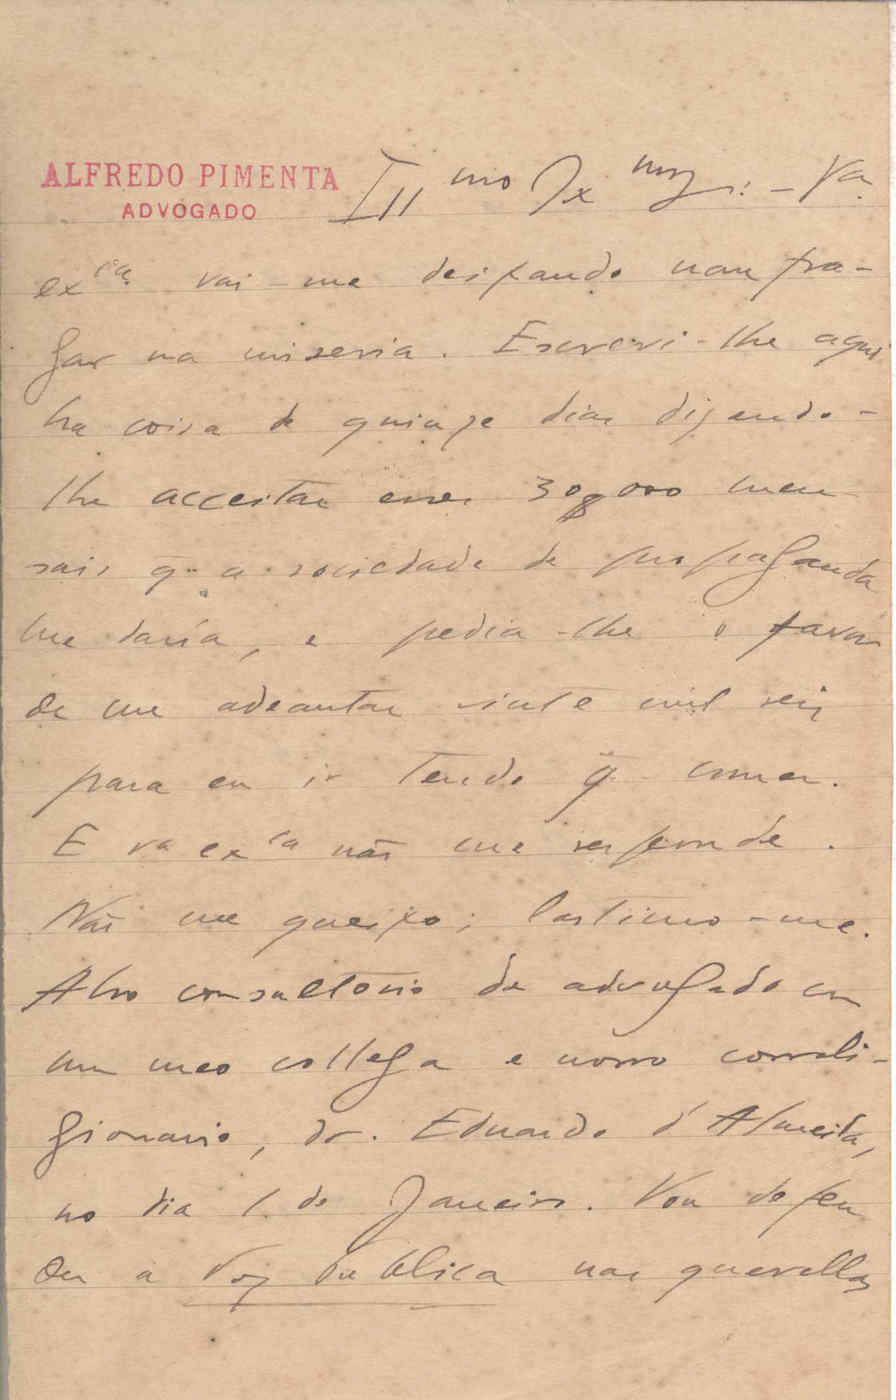 ALFREDO PIMENTA
ADVOGADO
Illmo Ex mo Sr: - Va.
excia. vai-me deixando naufra-
gar na miseria. Escrevi-lhe aqui
ha coisa de quinze dias dizendo-
lhe acceitar esses 30$000 men
sais q. a sociedade de propaganda
me daría, e pedia-lhe o favor
de me adeantar vinte mil reis
para eu ir tendo q. comer.
E va excia não me responde.
Não me queixo; lastimo-me.
Abro consultorio de advogado com
um meo collega e nosso correli-
gionario, dr. Eduardo d'Almeida,
no dia 1 de Janeiro. Vou defen
der a Voz Publica nas querellas